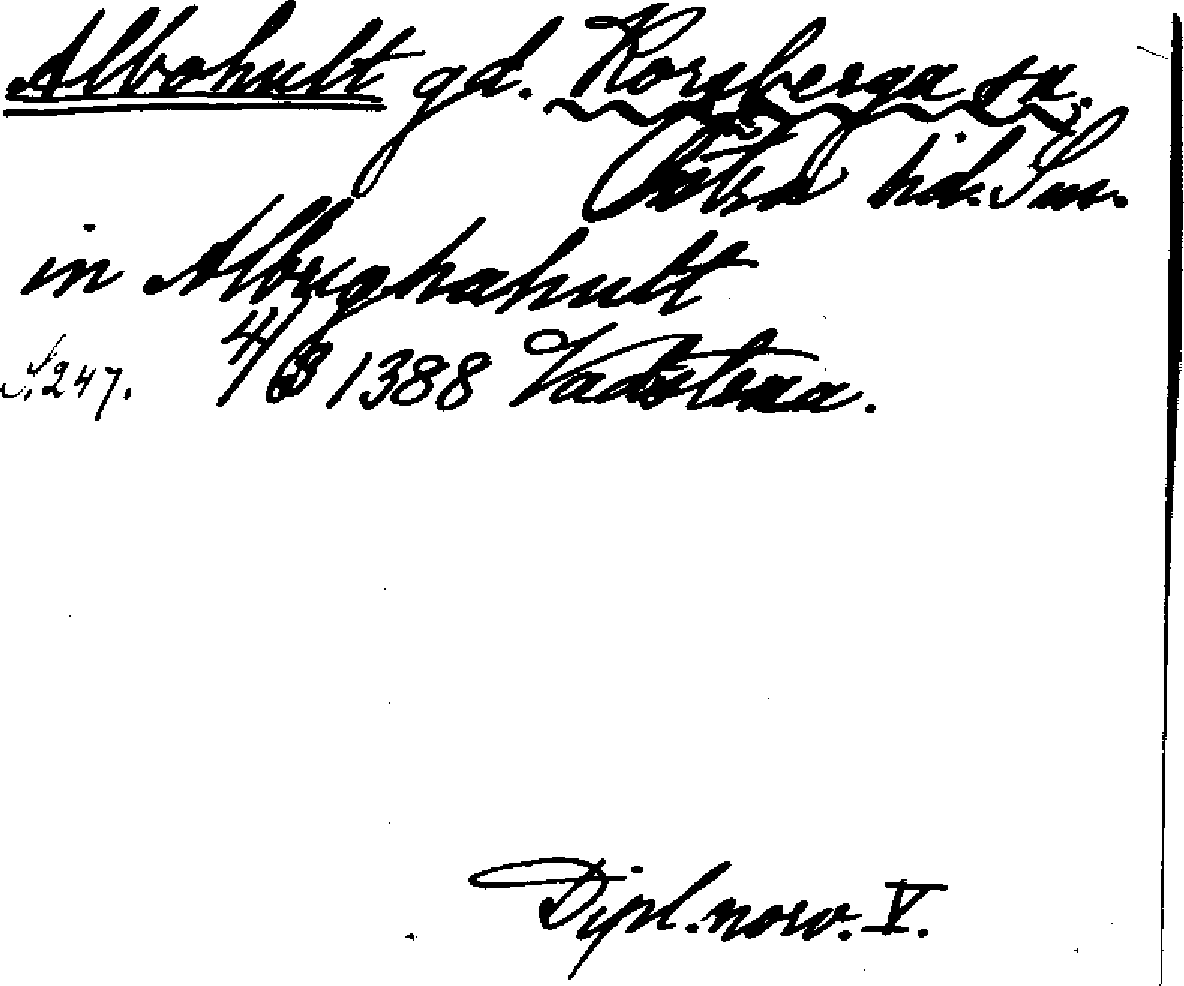 Albohult gd. Korsberga sn.
Östra hd. Sm.
in Albughahult
S. 247. 4/3 1388 Vadstena.
Dipl. norv. V.